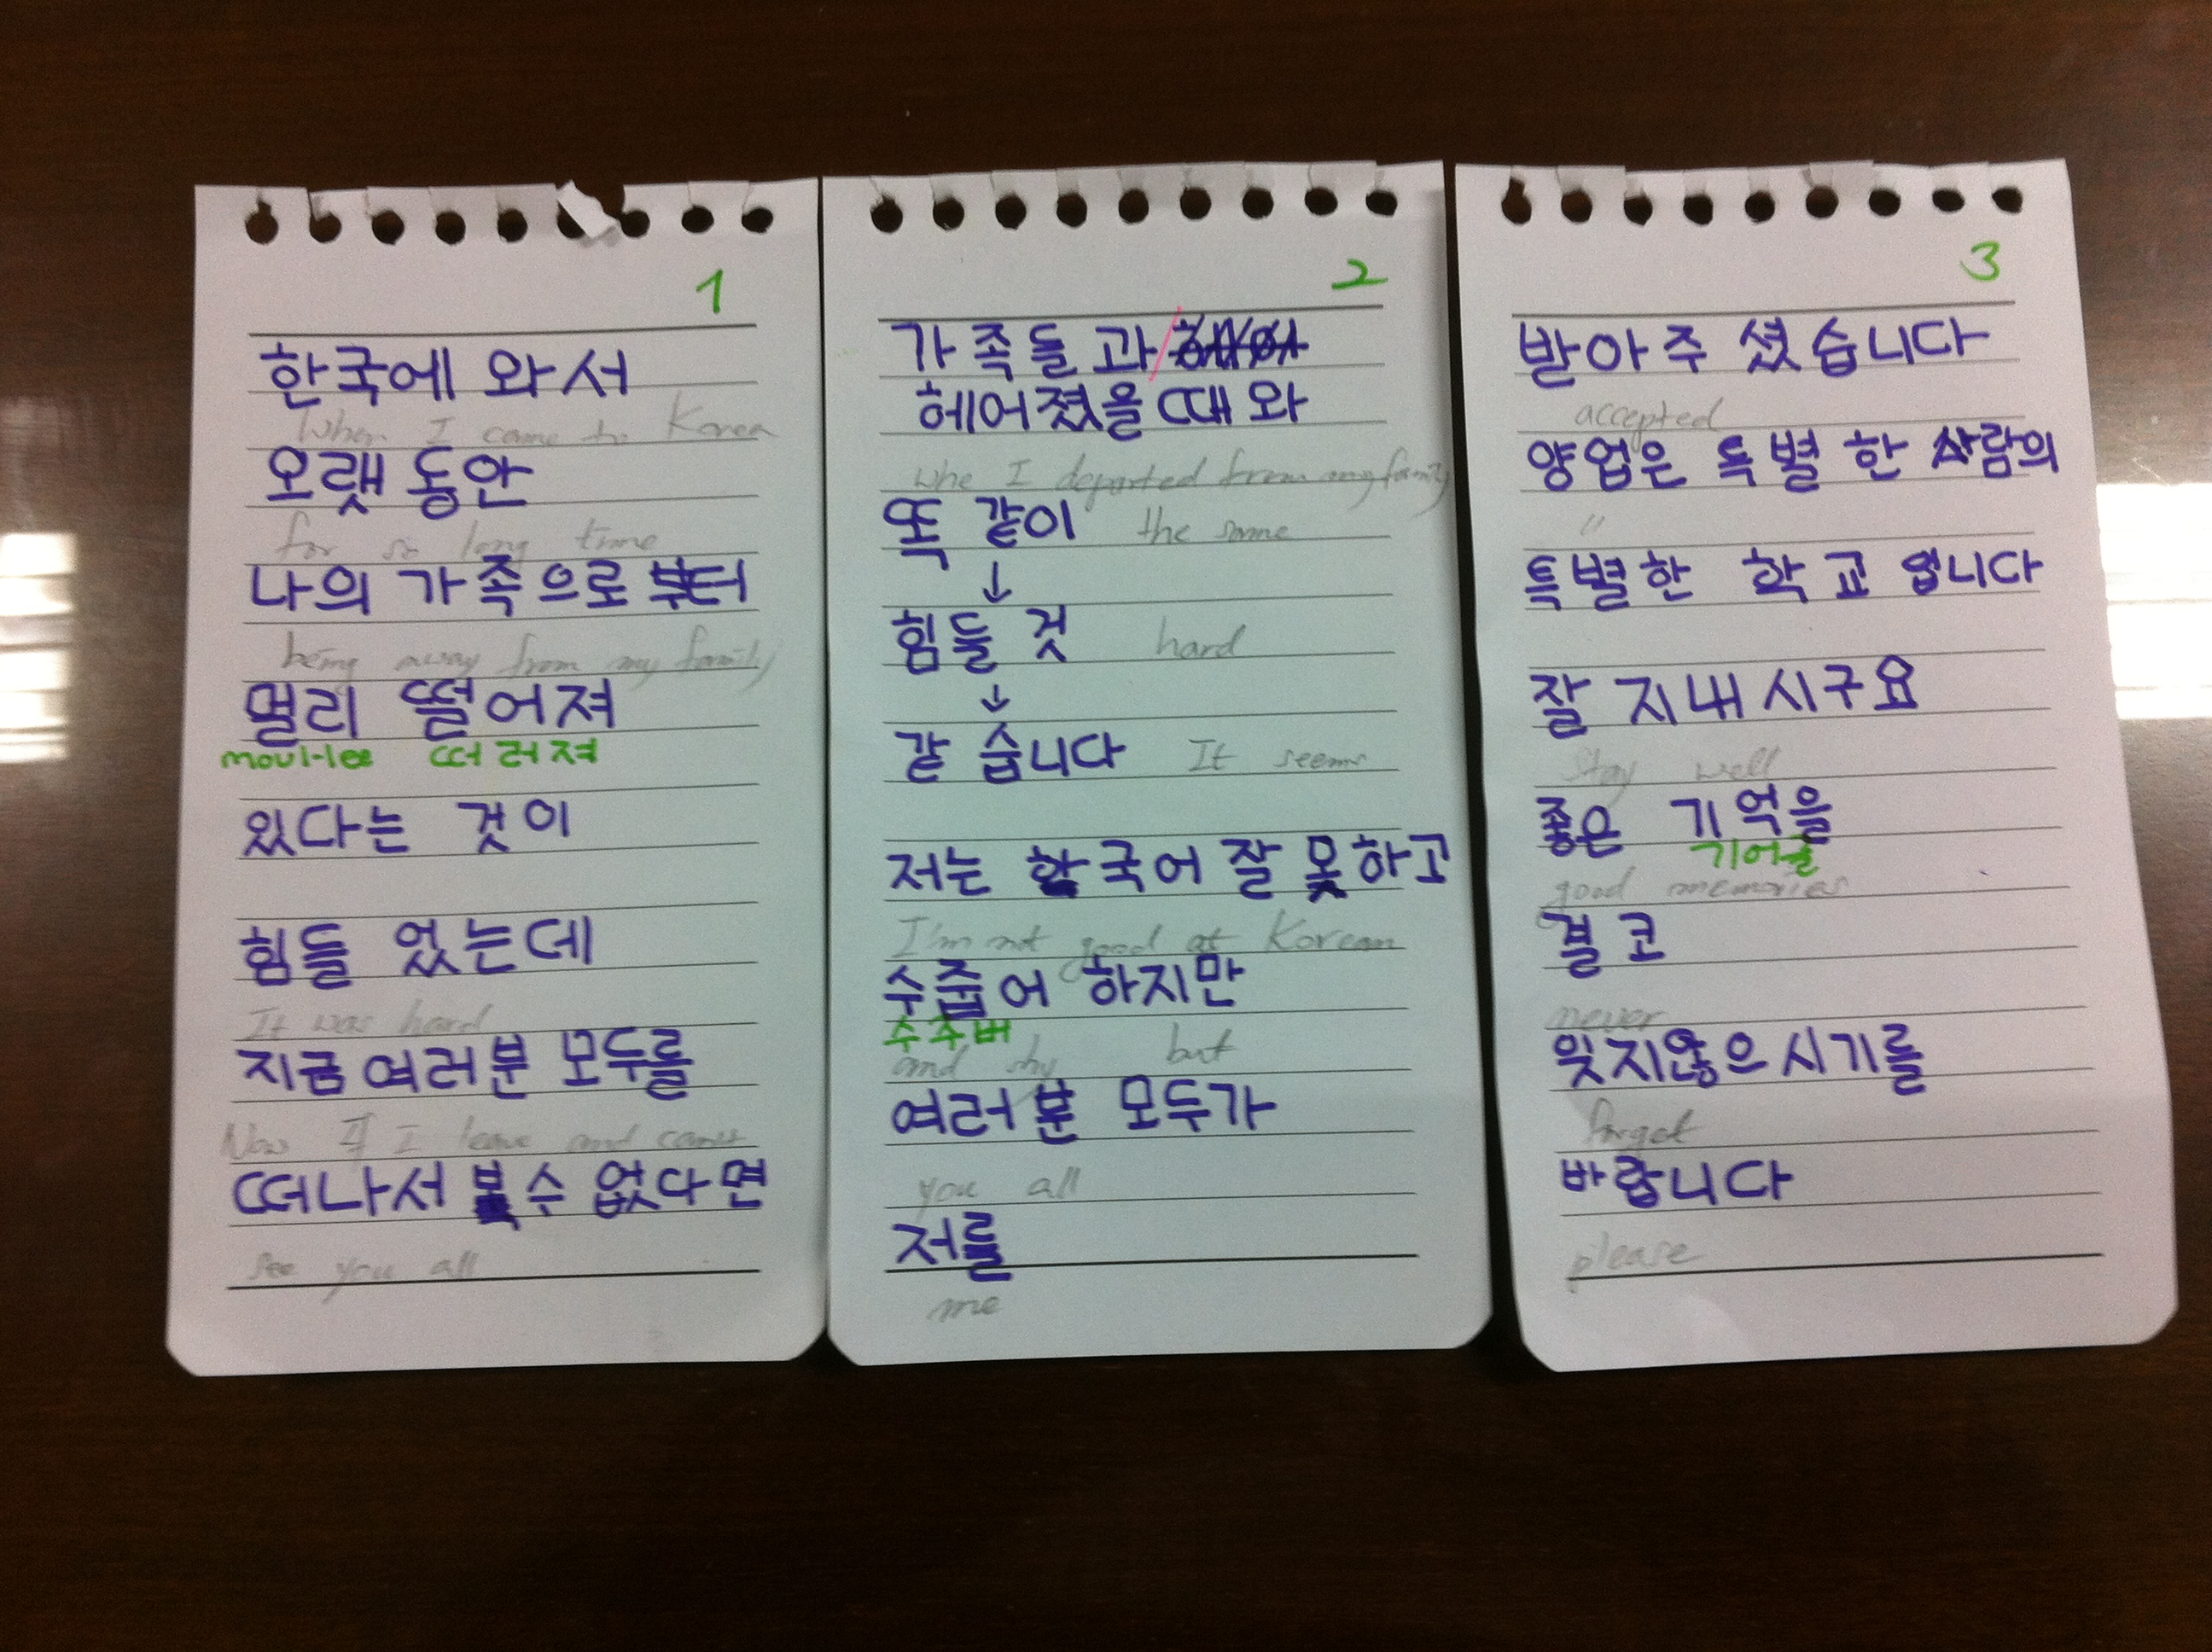 1
한국에 와서
When I came to Korea
오랫 동안
for so long time
나의 가족으로 부터
being away from my family
멀리 떨어져
moul-lee 떠러져
있다는 것이
힘들 었는데
It was hard
지금 여러분 모두를
Now If I leave and cannot
떠나서 볼 수 없다면
see you all
2
가족들과
헤어졌을 때 와
whe I departed from my family
똑 같이 the same
↓
힘들 것 hard
↓
같 습니다 It seems
저는 한국어 잘 못하고
I'm not good at Korean
수줍어 하지만
수주버
and shy but
여러분 모두가
you all
저를
me
3
받아주 셨습니다
accepted
양업은 특별한 사람의
"
특별한 학교 입니다
잘 지내시구요
Stay well
좋은 기억을
기어글
good memories
결코
never
잊지않으시기를
forget
바랍니다
please